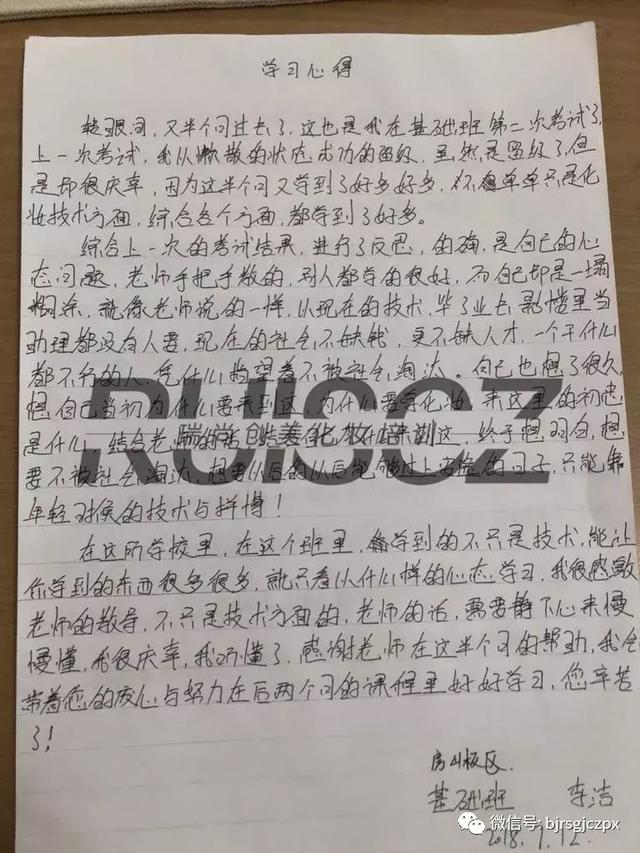 学习心得
转眼间，又半个月过去了，这也是我在基础班第二次考试了，
上一次考试，我从懒散的状态成功的留级，虽然是留级了，但
是却很庆幸，因为这半个月又学到了好多好多，不单单只是化
妆技术方面，综合各个方面，都学到了好多。
综合上一次的考试结果，进行了反思，的确，是自己的心
态问题，老师手把手教的，别人都学的很好，而自己却是一塌
糊涂，就像老师说的一样，以现在的技术，毕了业去影楼里当
助理都没有人要，现在的社会不缺钱，更不缺人才，一个干什么
都不行的人，凭什么指望着不被社会淘汰。自己也想了很久，
想自己当初为什么要来到这，为什么要学化妆，来这里的初衷
是什么，结合老师的话，这，终于想明白，想
要不被社会淘汰，想要以后的以后能够过上安稳的日子，只能靠
年轻时候的技术与拼博！
在这所学校里，在这个班里，学到的不只是技术，能让
你学到的东西很多很多，就只看以什么样的心态学习，我很感激
老师的教导，不只是技术方面的，老师的话，需要静下心来慢
慢懂，我很庆幸，我听懂了，感谢老师在这半个月的帮助，我会
带着您的爱心与努力在后两个月的课程里好好学习，您辛苦
了！
房山校区
基础班 李洁
2018.7.12
RUISCZ
瑞尚创美化妆培训
微信号: bjrsgjczpx